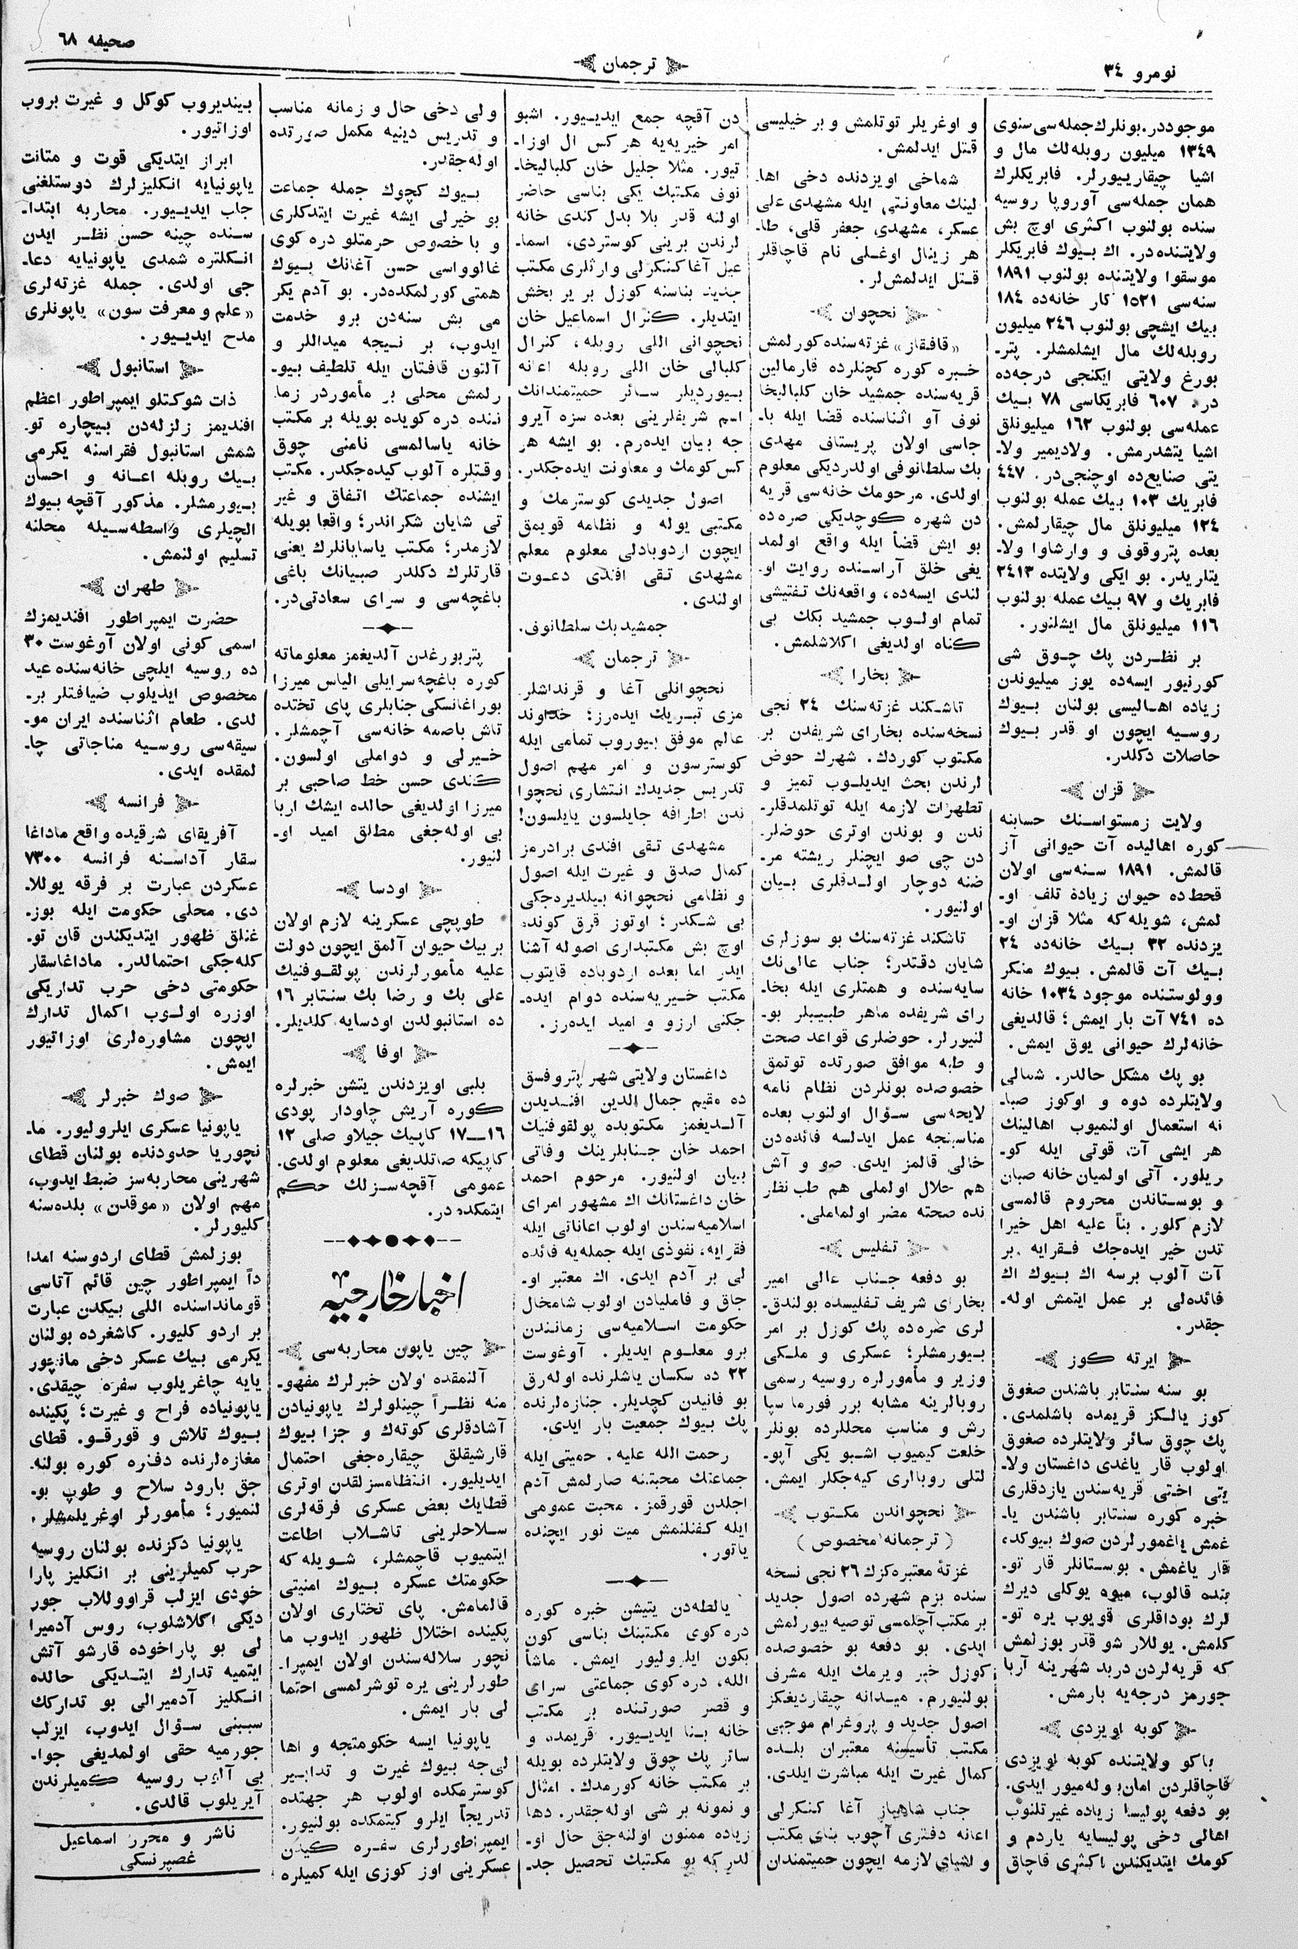 نومرو ٣٤
ترجمان
صحيفه ٦٨
موجوددر. بونلرك جمله‌سى سنوى
١٣٤٩ ميليون روبله‌لك مال و
اشيا چيقاريورلر. فابريكلرك
همان جمله‌سى آوروپا روسيه
سنده بولنوب اكثرى اوچ بش
ولايتنده‌در. اك بيوك فابريكلر
موسقوا ولايتنده بولنوب ١٨٩١
سنه‌سى ١٥٢١ كار خانه‌ده ١٨٤
بيك ايشچى بولنوب ٢٤٦ ميليون
روبله‌لك مال ايشلمشلر. پتر-
بورغ ولايتى ايكنجى درجه‌ده
در. ٦٠٧ فابريكاسى ٧٨ بيك
عمله‌سى بولنوب ١٦٢ ميليونلق
اشيا يتشدرمش. ولاديمير ولا-
يتى صنايع‌ده اوچنجى‌در. ٤٤٧
فابريك ١٠٣ بيك عمله بولنوب
١٢٤ ميليونلق مال چيقارلمش.
بعده پتروقوف و وارشاوا ولا-
يتلريدر. بو ايكى ولايتده ٢٤١٣
فابريك و ٩٧ بيك عمله بولنوب
١١٦ ميليونلق مال ايشلنور.
بر نظردن پك چوق شى
كورنيور ايسه‌ده يوز ميليوندن
زياده اهاليسى بولنان بيوك
روسيه ايچون او قدر بيوك
حاصلات دكلدر.
قزان
ولايت زمستواسنك حسابنه
كوره اهاليده آت حيوانى آز
قالمش. ١٨٩١ سنه‌سى اولان
قحط‌ده حيوان زياده تلف او-
لمش، شويله‌كه مثلا قزان او-
يزدنده ٣٢ بيك خانه‌ده ٢٤
بيك آت قالمش. بيوك منكر
وولوستنده موجود ١٠٣٤ خانه
ده ٧٤١ آت بار ايمش؛ قالديغى
خانه‌لرك حيوانى يوق ايمش.
بو پك مشكل حالدر. شمالى
ولايتلرده دوه و اوكوز صبا-
نه استعمال اولنميوب اهالينك
هر ايشى آت قوتى ايله كو-
ريلور. آتى اولميان خانه صبان
و بوستاندن محروم قالمسى
لازم كلور. بناً عليه اهل خيرا
تدن خير ايده‌جك فقرايه بر
آت آلوب برسه اك بيوك اك
فائده‌لى بر عمل ايتمش اوله-
جقدر.
ايرته كوز
بو سنه سنتابر باشندن صغوق
كوز يالكز قريمده باشلمدى.
پك چوق سائر ولايتلرده صغوق
اولوب قار ياغدى داغستان ولا-
يتى اختى قريه‌سندن يازدقلرى
خبره كوره سنتابر باشندن يا-
غمش ياغمورلردن صوك بيوكد،
قار ياغمش. بوستانلر قار تو-
بنده قالوب، ميوه يوكلى ديرك
لرك بوداقلرى قويوب يره تو-
كلمش. يوللار شو قدر بوزلمش
كه قريه‌لردن دربد شهرينه آربا
جورمز درجه‌يه بارمش.
كوبه اويزدى
باكو ولايتنده كوبه اويزدى
قاچاقلردن امان بوله‌ميور ايدى.
بو دفعه پوليسا زياده غيرتلنوب
اهالى دخى پوليسايه ياردم و
كومك ايتديكندن اكثرى قاچاق
و اوغريلر توتلمش و بر خيليسى
قتل ايدلمش.
شماخى اويزدنده دخى اها-
لينك معاونتى ايله مشهدى على
عسكر، مشهدى جعفر قلى، طا-
هر زينال اوغلى نام قاچاقلر
قتل ايدلمش‌لر.
نخچوان
«قافقاز» غزته‌سنده كورلمش
خبره كوره كچنلرده قارمالين
قريه‌سنده جمشيد خان كلباليخا
نوف آو اثناسنده قضا ايله با-
جاسى اولان پريستاف مهدى
بك سلطانوفى اولدرديكى معلوم
اولدى. مرحومك خانه‌سى قريه
دن شهره كوچديكى صره‌ده
بو ايش قضاً ايله واقع اولمد
يغى خلق آراسنده روايت او-
لندى ايسه‌ده، واقعه‌نك تفتيشى
تمام اولوب جمشيد بكك بى
كناه اولديغى اكلاشلمش.
بخارا
تاشكند غزته‌سنك ٢٤ نجى
نسخه‌سنده بخاراى شريفدن بر
مكتوب كوردك. شهرك حوض
لرندن بحث ايديلوب تميز و
تطهرات لازمه ايله توتلمدقلر-
ندن و بوندن اوترى حوضلر-
دن چى صو ايچنلر ريشته مر-
ضنه دوچار اولدقلرى بيان
اولنيور.
تاشكند غزته‌سنك بو سوزلرى
شايان دقتدر؛ جناب عالى‌نك
سايه‌سنده و همتلرى ايله بخا-
راى شريفده ماهر طبيبلر بو-
لنيورلر. حوضلرى قواعد صحت
و طبه موافق صورتده توتمق
خصوصده بونلردن نظام نامه
لايحه‌سى سؤال اولنوب بعده
مناسبنجه عمل ايدلسه فائده‌دن
خالى قالمز ايدى. صو و آش
هم حلال اولملى هم طب نظر
نده صحته مضر اولماملى.
تفليس
بو دفعه جناب عالى امير
بخاراى شريف تفليسده بولندق-
لرى صره‌ده پك كوزل بر امر
بيورمشلر؛ عسكرى و ملكى
وزير و مأمورلره روسيه رسمى
روبالرينه مشابه برر فورما سپا
رش و مناسب محللرده بونلر
خلعت كيميوب اشبو يكى آپو-
لتلى روبالرى كيه‌جكلر ايمش.
نخچواندن مكتوب
( ترجمانه مخصوص )
غزتهٔ معتبره‌كزك ٢٦ نجى نسخه
سنده بزم شهرده اصول جديد
بر مكتب آچلمسى توصيه بيورلمش
ايدى. بو دفعه بو خصوصده
كوزل خبر ويرمك ايله مشرف
بولنيورم. ميدانه چيقارديغكز
اصول جديد و پروغرام موجبى
مكتب تأسيسنه معتبران بلده
كمال غيرت ايله مباشرت ايلدى.
جناب شاهباز آغا كنكرلى
اعانه دفترى آچوب بناى مكتب
و اشياى لازمه ايچون حميتمندان
دن آقچه جمع ايديور. اشبو
امر خيريه‌يه هر كس ال اوزا-
تيور. مثلا جليل خان كلباليخا-
نوف مكتبك يكى بناسى حاضر
اولنه قدر بلا بدل كندى خانه
لرندن برينى كوستردى، اسما-
عيل آغا كنكرلى وارثلرى مكتب
جديد بناسنه كوزل بر ير بخش
ايتديلر. كنرال اسماعيل خان
نخچوانى اللى روبله، كنرال
كلبالى خان اللى روبله اعانه
بيورديلر سائر حميتمندانك
اسم شريفلرينى بعده سزه آيرو
جه بيان ايده‌رم. بو ايشه هر
كس كومك و معاونت ايده‌جكدر.
اصول جديدى كوسترمك و
مكتبى يوله و نظامه قويمق
ايچون اردوبادلى معلوم معلم
مشهدى تقى افندى دعوت
اولندى.
جمشيد بك سلطانوف.
ترجمان
نخچوانلى آغا و قرنداشلر
مزى تبريك ايده‌رز؛ خداوند
عالم موفق بيوروب تمامى ايله
كوسترسون و امر مهم اصول
تدريس جديدك انتشارى نخچوا
ندن اطرافه جايلسون يايلسون!
مشهدى تقى افندى برادرمز
كمال صدق و غيرت ايله اصول
و نظامى نخچوانه بيلديره‌جكى
بى شكدر؛ اوتوز قرق كونده
اوچ بش مكتبدارى اصوله آشنا
ايدر اما بعده اردوباده قايتوب
مكتب خيريه‌سنده دوام ايده-
جكنى آرزو و اميد ايده‌رز.
داغستان ولايتى شهر پتروفسق
ده مقيم جمال الدين افنديدن
آلديغمز مكتوبده پولقوفنيك
احمد خان جنابلرينك وفاتى
بيان اولنيور. مرحوم احمد
خان داغستانك اك مشهور امراى
اسلاميه‌سندن اولوب اعاناتى ايله
فقرايه، نفوذى ايله جمله‌يه فائده
لى بر آدم ايدى. اك معتبر او-
جاق و فاميلادن اولوب شامخال
حكومت اسلاميه‌سى زمانندن
برو معلوم ايديلر. آوغوست
٢٢ ده سكسان ياشلرنده اوله‌رق
بو فانيدن كچديلر. جنازه‌لرنده
پك بيوك جمعيت بار ايدى.
رحمت الله عليه. حميتى ايله
جماعتك محبتنه صارلمش آدم
اجلدن قورقمز. محبت عمومى
ايله كفنلنمش ميت نور ايچنده
ياتور.
يالطه‌دن يتيشن خبره كوره
دره‌كوى مكتبنك بناسى كون
بكون ايلروليور ايمش. ماشأ
الله، دره‌كوى جماعتى سراى
و قصر صورتنده بر مكتب
خانه بنا ايديور. قريمده و
سائر پك چوق ولايتلرده بويله
بر مكتب خانه كورمدك. امثال
و نمونه بر شى اوله‌جقدر. دها
زياده ممنون اولنه‌جق حال او-
لدركه بو مكتبك تحصيل جد-
ولى دخى حال و زمانه مناسب
و تدريس دينيه مكمل صورتده
اوله‌جقدر.
بيوك كچوك جمله جماعت
بو خيرلى ايشه غيرت ايتدكلرى
و با خصوص حرمتلو دره كوى
غالوواسى حسن آغانك بيوك
همتى كورلمكده‌در. بو آدم يكر
مى بش سنه‌دن برو خدمت
ايدوب، بر نيجه ميداللر و
آلتون قافتان ايله تلطيف بيو-
رلمش محلى بر مأموردر زما
ننده دره كويده بويله بر مكتب
خانه ياسالمسى نامنى چوق
وقتلره آلوب كيده‌جكدر. مكتب
ايشنده جماعتك اتفاق و غير
تى شايان شكراندر؛ واقعا بويله
لازمدر؛ مكتب ياساپانلرك يعنى
قارتلرك دكلدر صبيانك باغى
باغچه‌سى و سراى سعادتى‌در.
پتربورغدن آلديغمز معلوماته
كوره باغچه‌سرايلى الياس ميرزا
بوراغانسكى جنابلرى پاى تختده
تاش باصمه خانه‌سى آچمشلر.
خيرلى و دواملى اولسون.
كندى حسن خط صاحبى بر
ميرزا اولديغى حالده ايشك اربا
بى اوله‌جغى مطلق اميد او-
لنيور.
اودسا
طوپچى عسكرينه لازم اولان
بر بيك حيوان آلمق ايچون دولت
عليه مأمورلرندن پولقوفنيك
على بك و رضا بك سنتابر ١٦
ده استانبولدن اودسايه كلديلر.
اوفا
بلبى اويزدندن يتشن خبرلره
كوره آريش چاودار پودى
١٦—١٧ كاپيك جيلاو صلى ١٢
كاپيكه صاتلديغى معلوم اولدى.
عمومى آقچه‌سزلك حكم
ايتمكده‌در.
اخبار خارجيه
چين ياپون محاربه‌سى
آلنمقده اولان خبرلرك مفهو-
منه نظراً چينلولرك ياپونيادن
آشادقلرى كوتك و جزا بيوك
قارشيقلق چيقاره‌جغى احتمال
ايديليور. انتظامسزلقدن اوترى
قطايك بعض عسكرى فرقه‌لرى
سلاحلرينى تاشلاب اطاعت
ايتميوب قاچمشلر، شويله‌كه
حكومتك عسكره بيوك امنيتى
قالمامش. پاى تختارى اولان
پكينده اختلال ظهور ايدوب ما
نچور سلاله‌سندن اولان ايمپرا-
طورلرينى يره توشرلمسى احتما
لى بار ايمش.
ياپونيا ايسه حكومتجه و اها
لى‌جه بيوك غيرت و تدابير
كوسترمكده اولوب هر جهتده
تدريجاً ايلرو كيتمكده بولنيور.
ايمپراطورلرى سفره كيدن
عسكرينى اوز كوزى ايله كميلره
بينديروب كوكل و غيرت بروب
اوزاتيور.
ابراز ايتديكى قوت و متانت
ياپونيايه انكليزلرك دوستلغنى
جاب ايديور. محاربه ابتدا-
سنده چينه حسن نظر ايدن
انكلتره شمدى ياپونيايه دعا-
جى اولدى. جمله غزته‌لرى
«علم و معرفت سون» ياپونلرى
مدح ايديور.
استانبول
ذات شوكتلو ايمپراطور اعظم
افنديمز زلزله‌دن بيچاره تو-
شمش استانبول فقراسنه يكرمى
بيك روبله اعانه و احسان
بيورمشلر. مذكور آقچه بيوك
الچيلرى واسطه‌سيله محلنه
تسليم اولنمش.
طهران
حضرت ايمپراطور افنديمزك
اسمى كونى اولان آوغوست ٣٠
ده روسيه ايلچى خانه‌سنده عيد
مخصوص ايديلوب ضيافتلر بر-
لدى. طعام اثناسنده ايران مو-
سيقه‌سى روسيه مناجاتى چا-
لمقده ايدى.
فرانسه
آفريقاى شرقيده واقع ماداغا
سقار آداسنه فرانسه ٧٣٠٠
عسكردن عبارت بر فرقه يوللا-
دى. محلى حكومت ايله بوز-
غنلق ظهور ايتديكندن قان تو-
كله‌جكى احتمالدر. ماداغاسقار
حكومتى دخى حرب تداريكى
اوزره اولوب اكمال تدارك
ايچون مشاوره‌لرى اوزاتيور
ايمش.
صوك خبرلر
ياپونيا عسكرى ايلروليور. ما-
نچوريا حدودنده بولنان قطاى
شهرينى محاربه‌سز ضبط ايدوب،
مهم اولان «موقدن» بلده‌سنه
كليورلر.
بوزلمش قطاى اردوسنه امدا
داً ايمپراطور چين قائم آتاسى
قومانداسنده اللى بيكدن عبارت
بر اردو كليور. كاشغرده بولنان
يكرمى بيك عسكر دخى مانچور
يايه چاغريلوب سفره چيقدى.
ياپونياده فراح و غيرت؛ پكينده
بيوك تلاش و قورقو. قطاى
مغازه‌لرنده دفتره كوره بولنه-
جق بارود سلاح و طوپ بو-
لنميور؛ مأمورلر اوغريلمشلر.
ياپونيا دكزنده بولنان روسيه
حرب كميلرينى بر انكليز پارا
خودى ايزلب قراووللاب جور
ديكى اكلاشلوب، روس آدميرا
لى بو پاراخوده قارشو آتش
ايتميه تدارك ايتديكى حالده
انكليز آدميرالى بو تداركك
سببنى سؤال ايدوب، ايزلب
جورميه حقى اولمديغى جوا-
بى آلوب روسيه كميلرندن
آيريلوب قالدى.
ناشر و محرر اسماعيل
غصپرنسكى